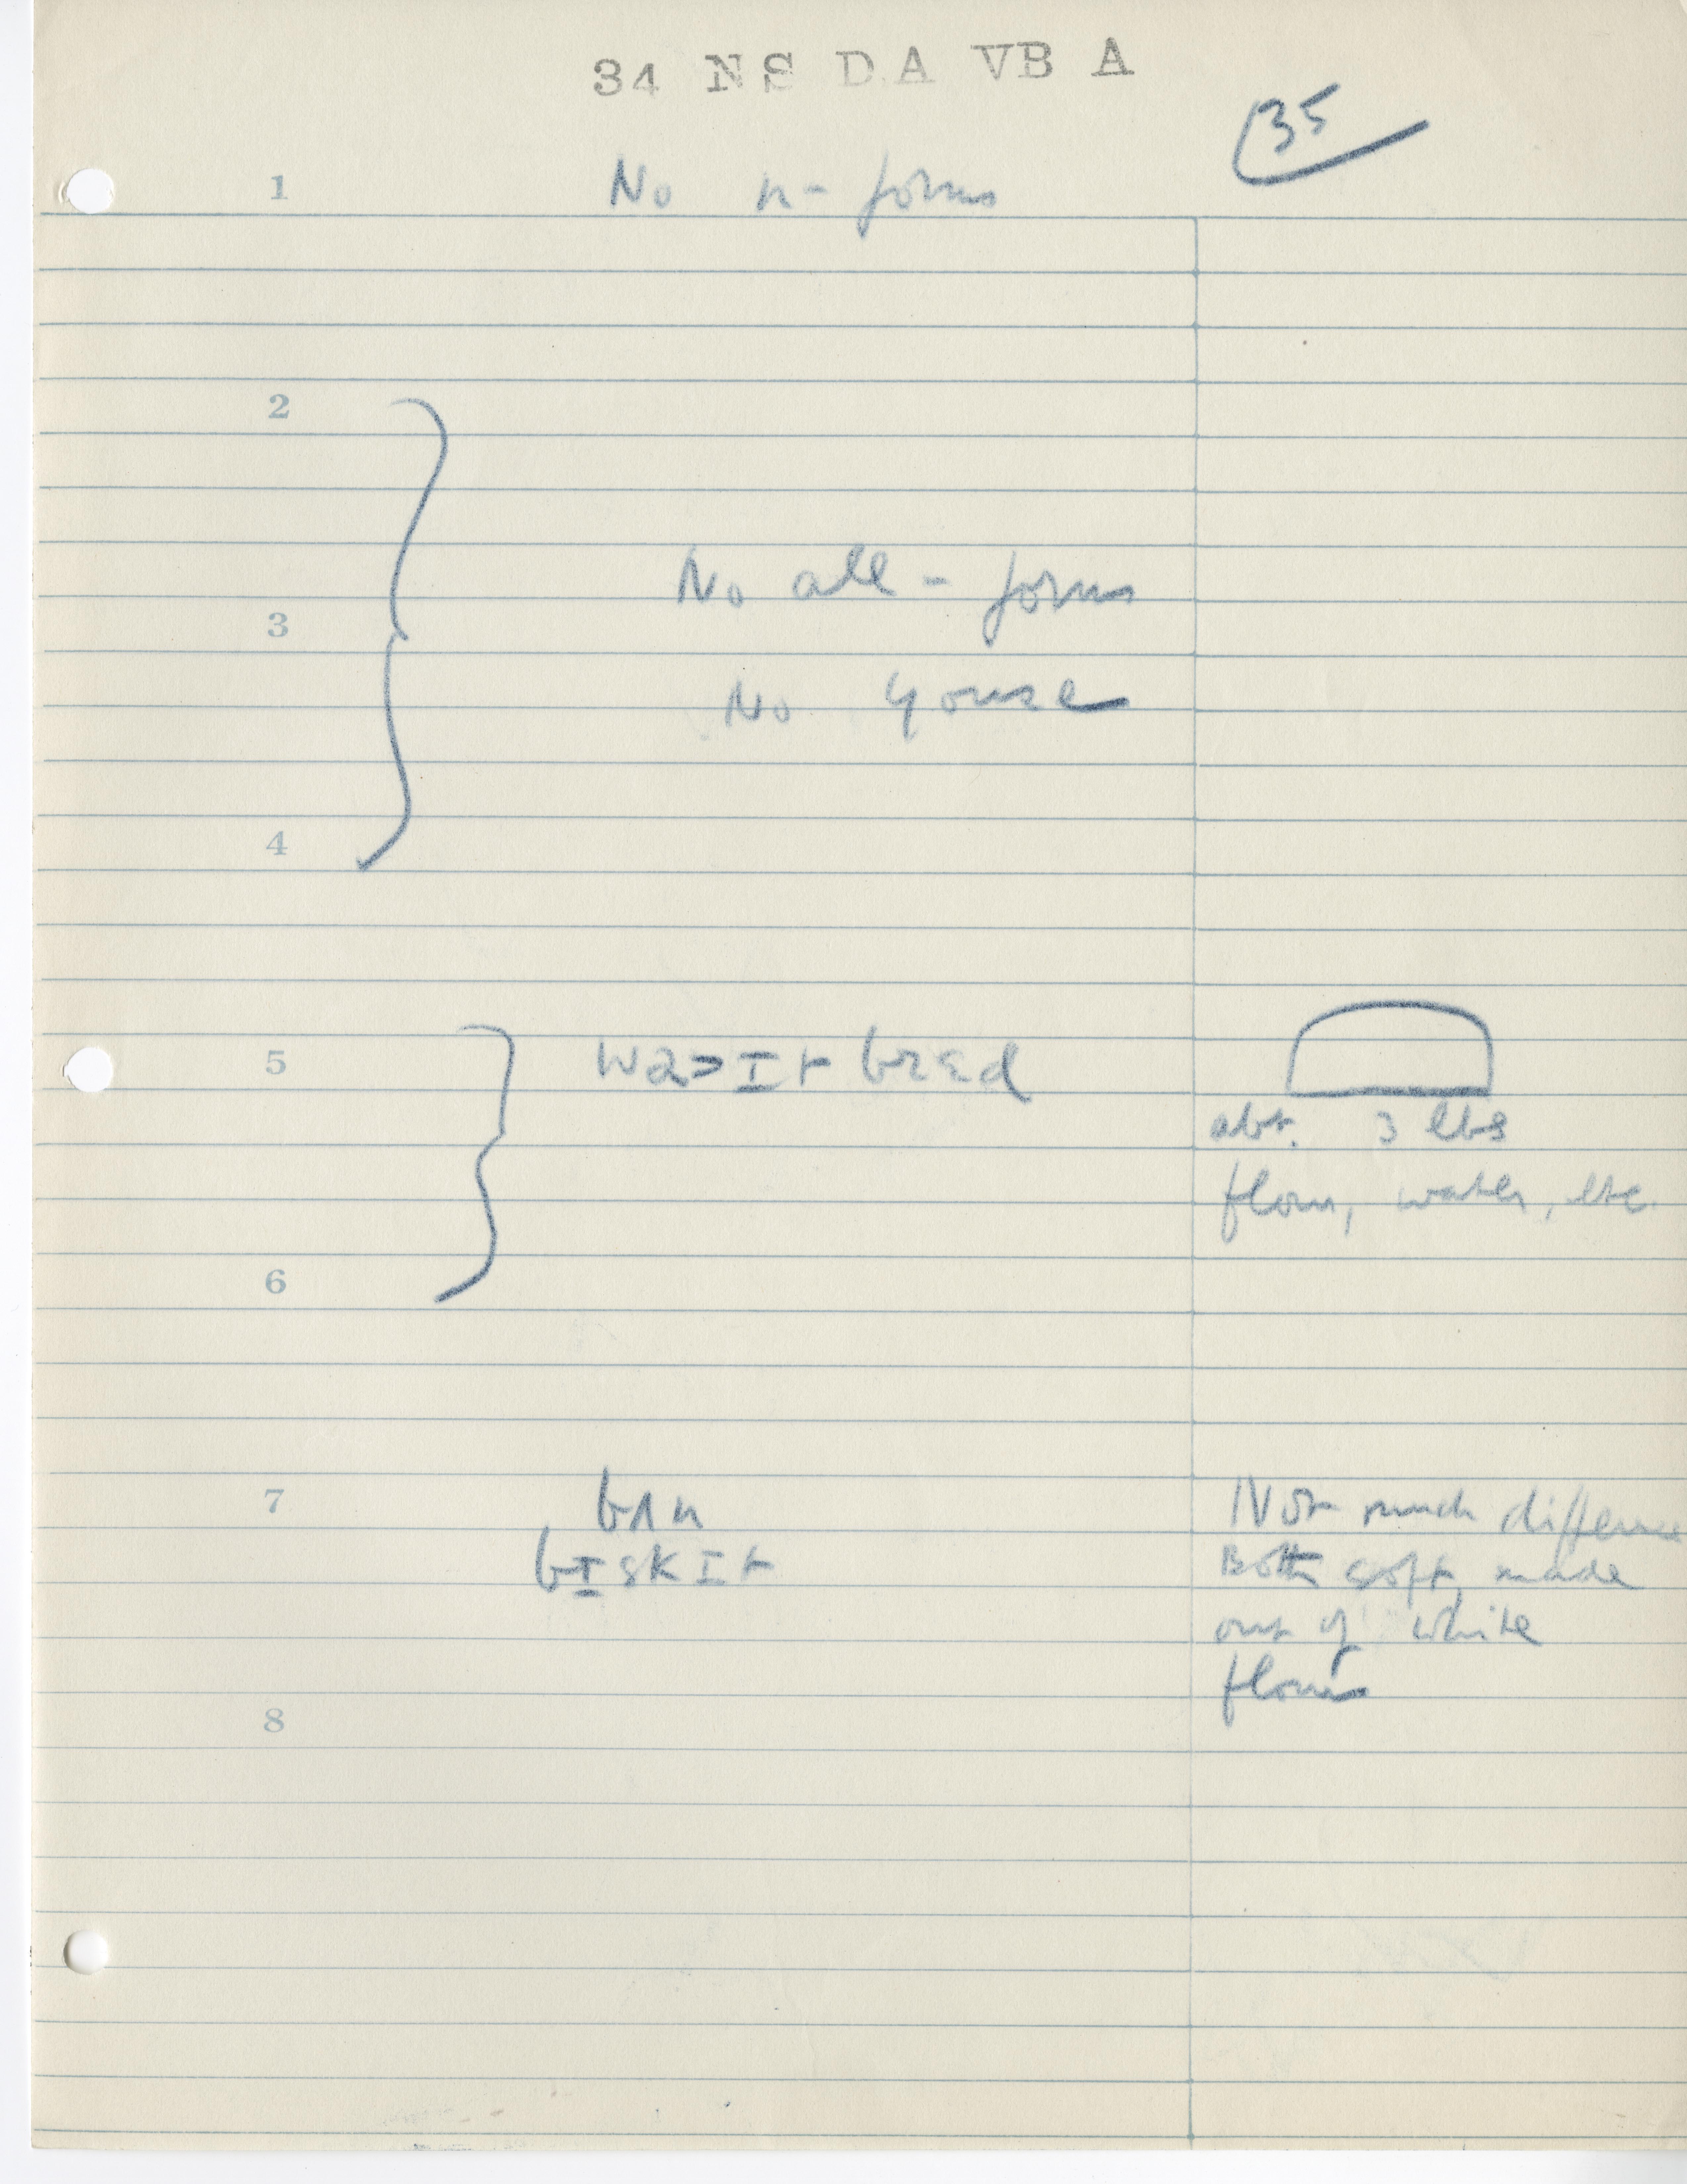 34 NS DA VB A
35
1 No n- forms
2
No all - forms
3
No youse
4
5 bred
abt. 3 lbs
flour, water, etc.
6
7 bʌn
bɪskɪt
Not much difference
Both soft, made
out of white
flour
8